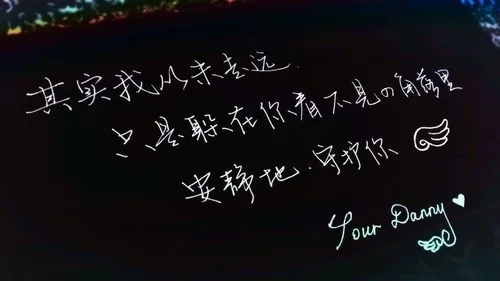 其实我从未走远.
只是躲在你看不见的角落里
安静地.守护你
Your Danny